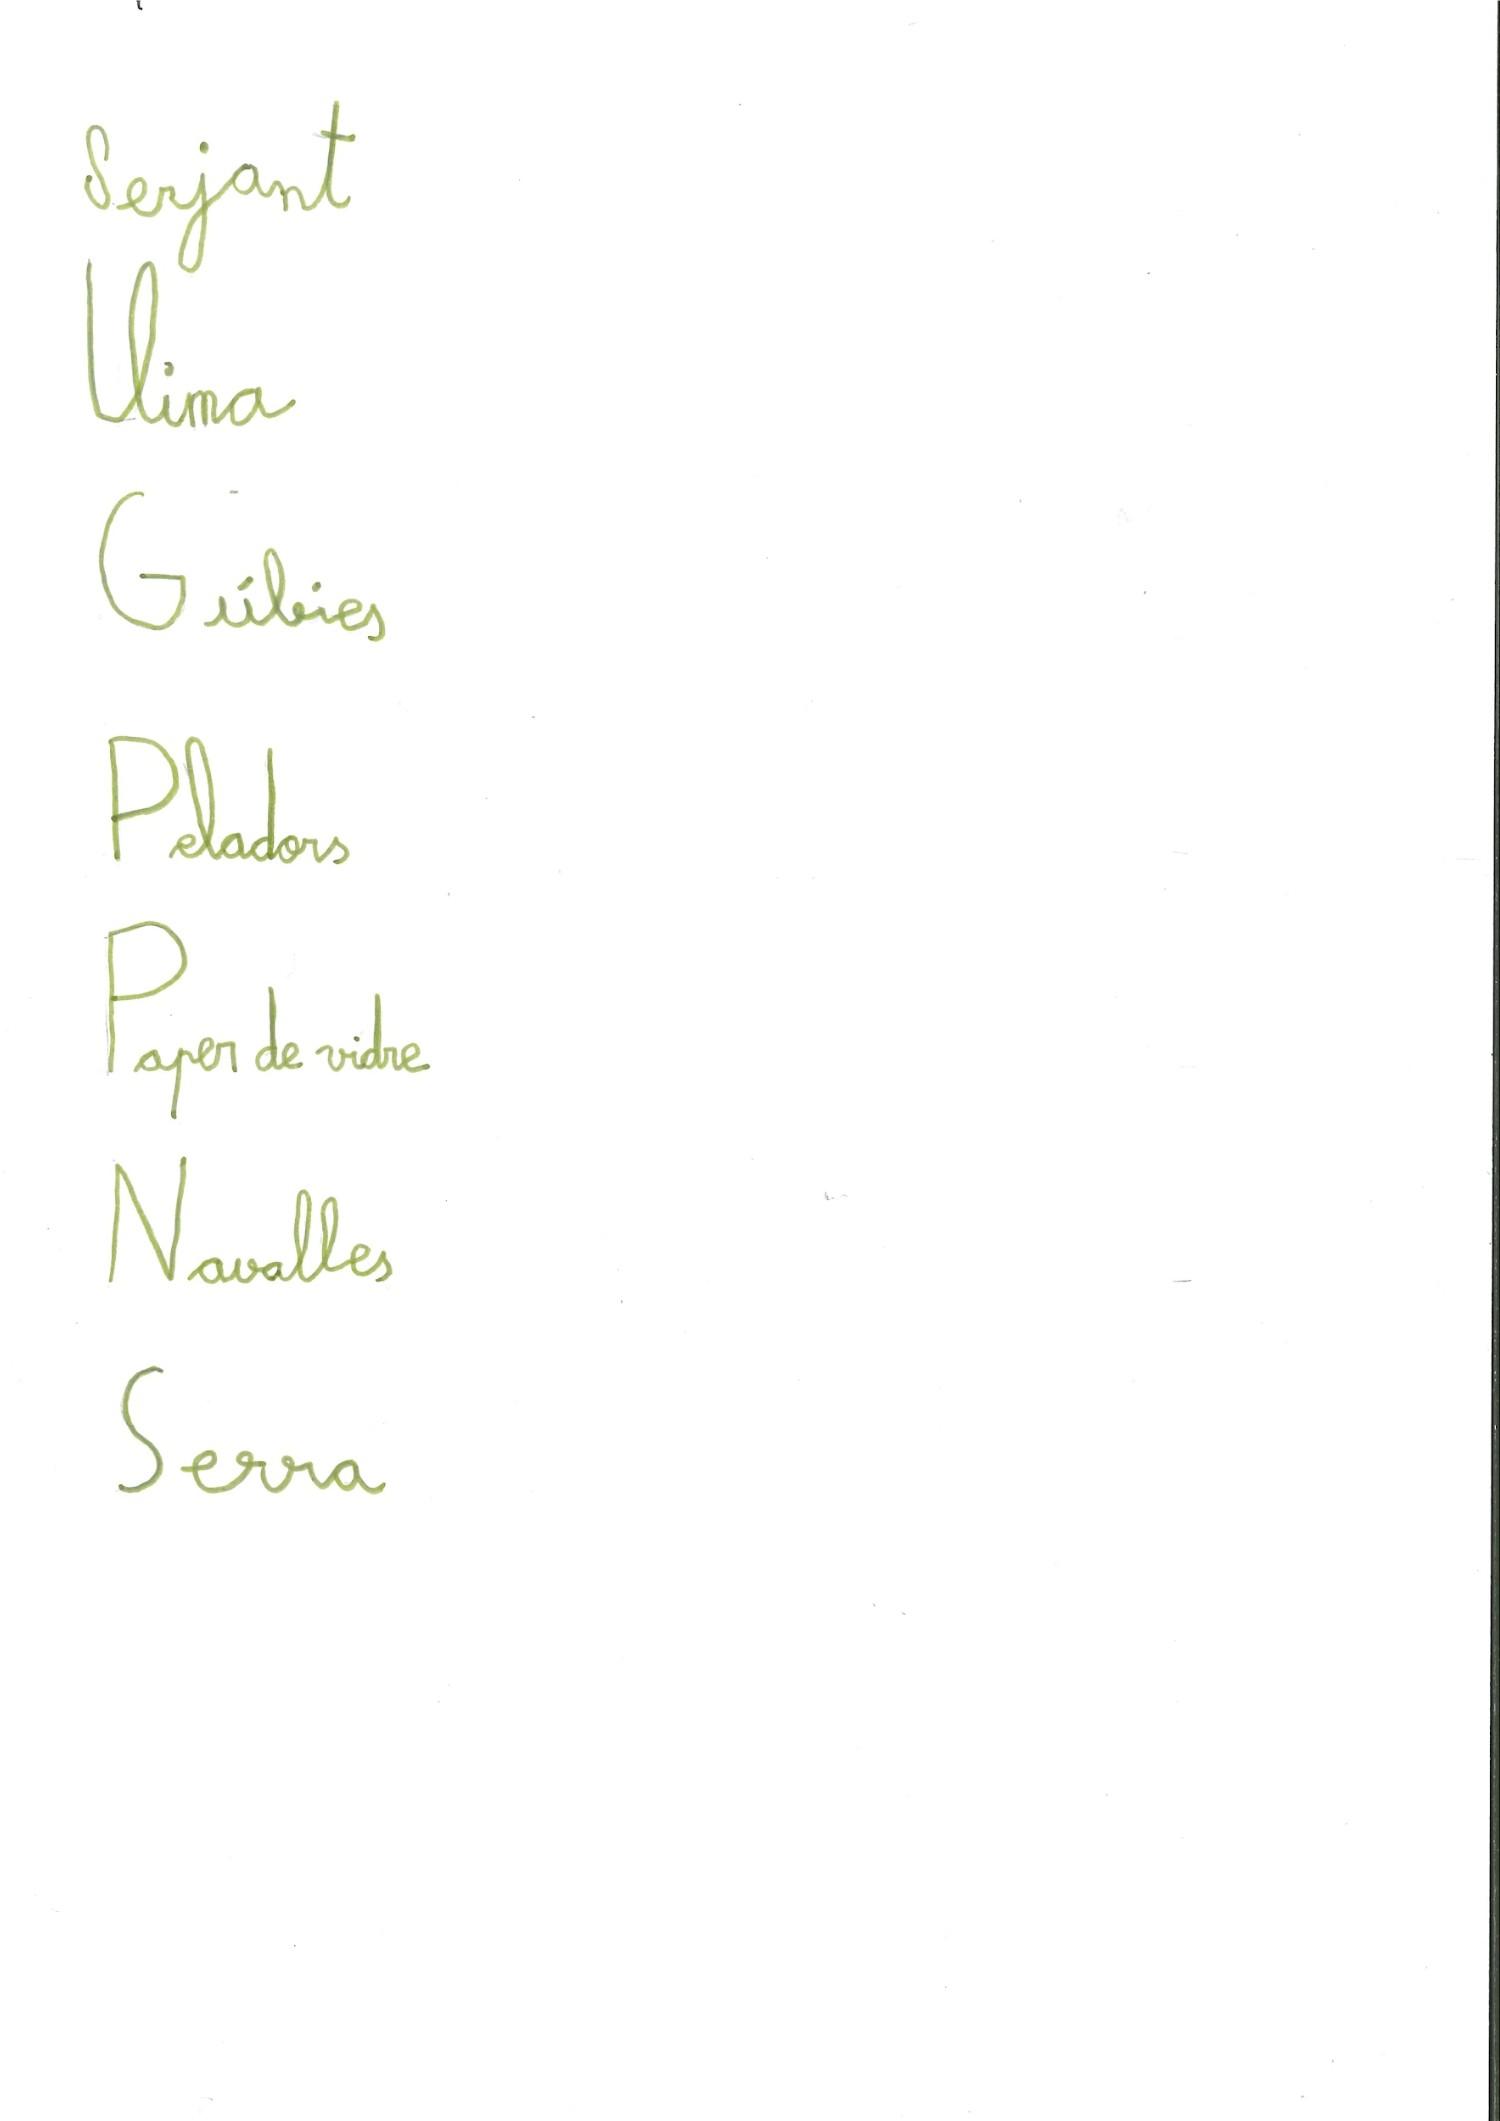 Serjant
Llima
Gúbies
Peladors
Paper de vidre
Navalles
Serra